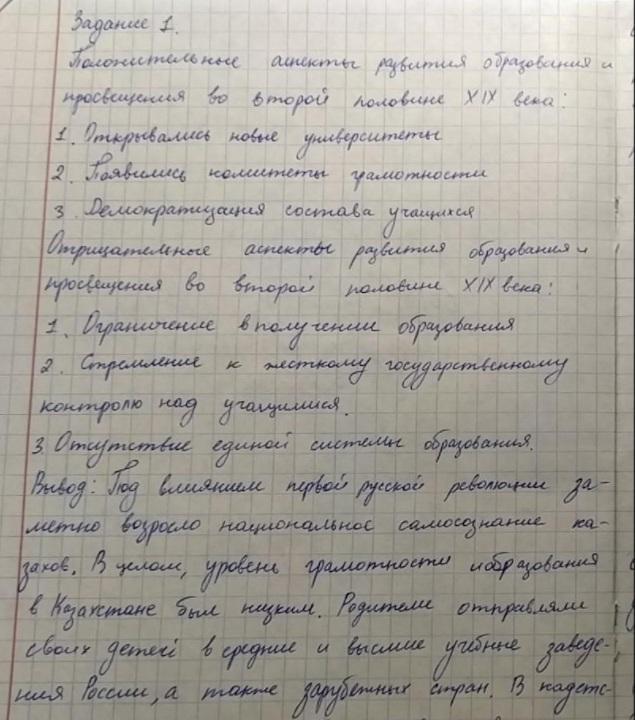 Задание 1.
Положительные аспекты развития образования и
просвещения во второй половине XIX века:
1. Открывались новые университеты
2. Появились комитеты грамотности
3. Демократизация состава учащихся
Отрицательные аспекты развития образования и
просвещения во второй половине XIX века:
1. Ограничение в получении образования
2. Стремление к жесткому государственному
контролю над учащимися.
3. Отсутствие единой системы образования.
Вывод: Под влиянием первой русской революции за-
метно возросло национальное самосознание ка-
захов. В целом, уровень грамотности и образования
в Казахстане был низким. Родители отправляли
своих детей в средние и высшие учебные заведе-
ния России, а также зарубежных стран. В кадетс-